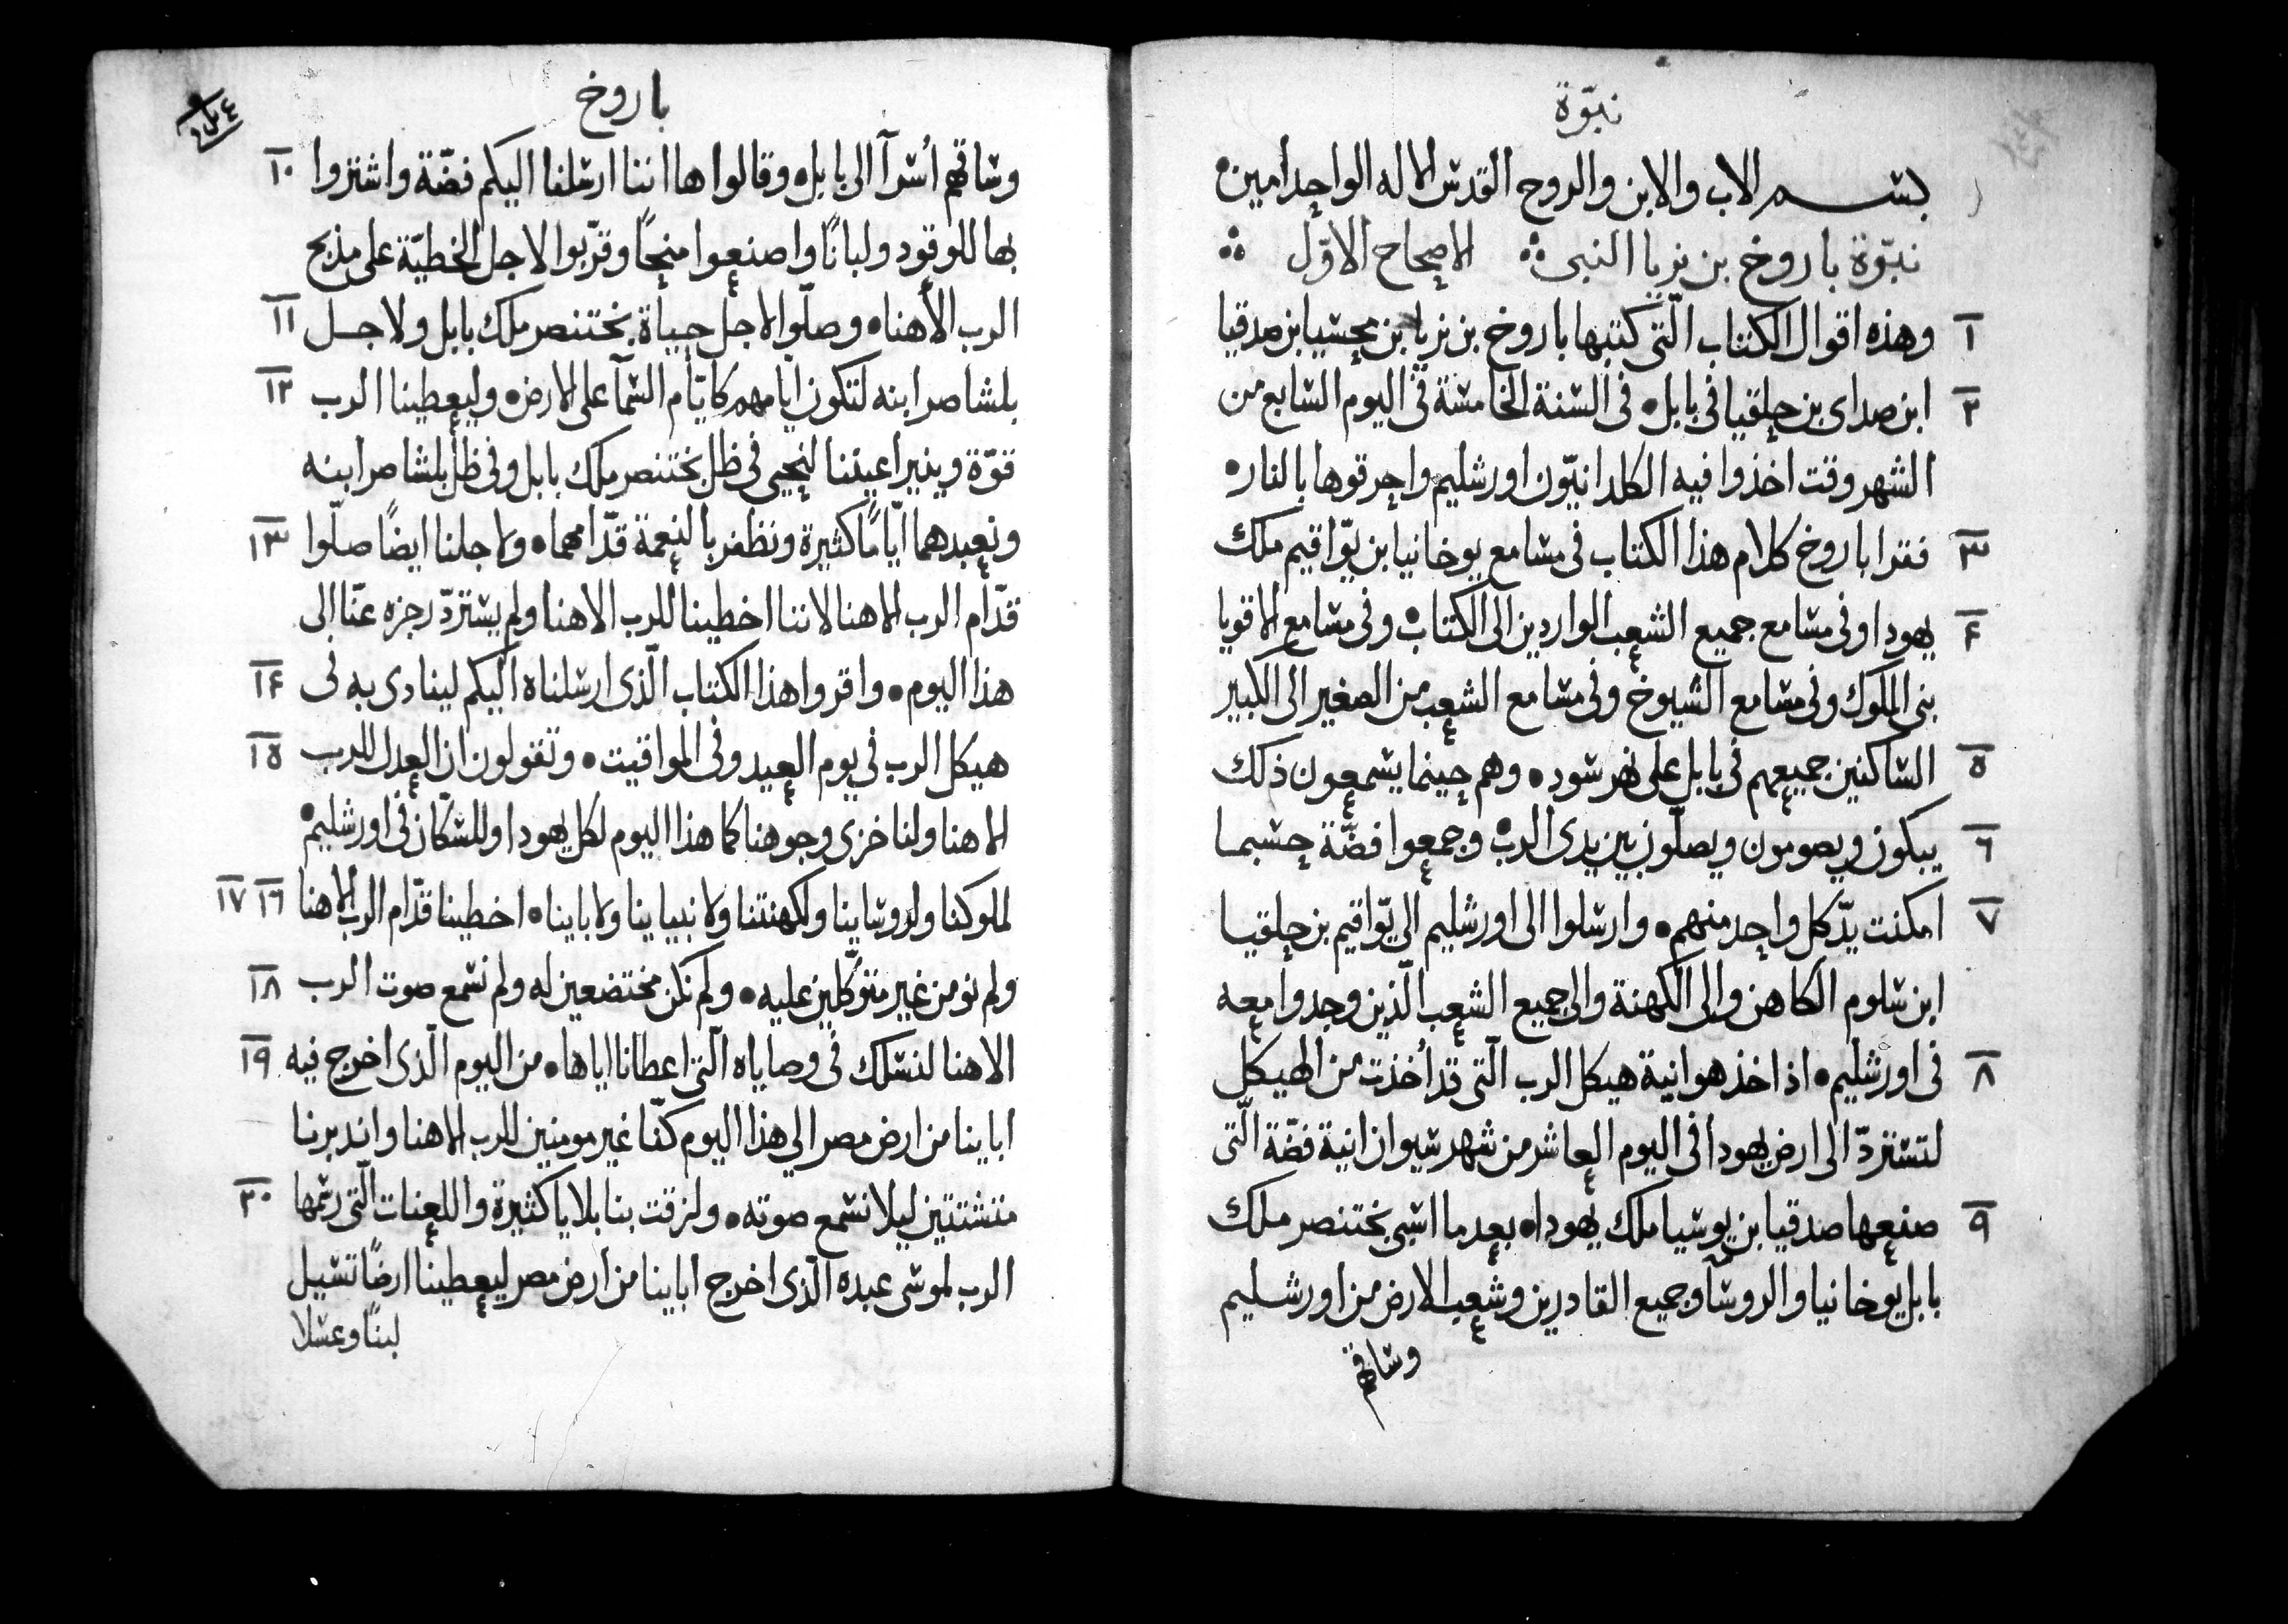 نبوّة
بسم الاب والابن والروح القدس الاله الواحد امين
نبوّة باروخ بن نريا النبى الاصحاح الاوّل
١ وهذه اقوال الكتاب الّتى كتبها باروخ بن نريا بن محسيا بن صدقيا
٢ ابن صداى بن حلقيا فى بابل • فى السنة الخامسة فى اليوم السابع من
الشهر وقت اخذوا فيه الكلدانيّون اورشليم واحرقوها بالنار •
٣ فقرا باروخ كلام هذا الكتاب فى مسامع يوخانيا بن يوّاقيم ملك
٤ يهودا وفى مسامع جميع الشعب الواردين الى الكتاب • وفى مسامع الاقويا
بنى الملوك وفى مسامع الشيوخ وفى مسامع الشعب من الصغير الى الكبير
٥ الساكنين جميعهم فى بابل على نهر سود • وهم حينما يسمعون ذلك
٦ يبكون ويصومون ويصلّون بين يدى الرب • وجمعوا فضّة حسبما
٧ امكنت يدّ كل واحد منهم • وارسلوا الى اورشليم الى يوّاقيم بن حلقيا
ابن سلوم الكاهن والى الكهنة والى جميع الشعب الّذين وجدوا معه
٨ فى اورشليم • اذ اخذ هو انية هيكل الرب الّتى قد أُخذت من الهيكل
لتستردّ الى ارض يهودا فى اليوم العاشر من شهر سيوان انية فضّة الّتى
٩ صنعها صدقيا بن يوسيا ملك يهودا • بعد ما اسبى بختنصر ملك
بابل يوخانيا والروسآ وجميع القادرين وشعب الارض من اورشليم
وساقهم
باروخ
وساقهم أُسرآ الى بابل • وقالوا ها اننا ارسلنا اليكم فضّة واشتروا ١٠
بها للوقود ولبانًا واصنعوا منحًا وقرّبوا لاجل الخطيّة على مذبح
الرب الاهنا • وصلّوا لاجل حياة بختنصر ملك بابل ولاجل ١١
بلشاصر ابنه لتكون ايامهم كايّام السمآ على الارض • وليعطينا الرب ١٢
قوّة وينير اعيننا لنحيى فى ظل بختنصر ملك بابل وفى ظل بلشاصر ابنه
ونعبدهما ايّامًا كثيرة ونظفر بالنعمة قدّامهما • ولاجلنا ايضًا صلّوا ١٣
قدّام الرب الاهنا لاننا اخطينا للرب الاهنا ولم يستردّ رجزه عنّا الى
هذا اليوم • واقروا هذا الكتاب الّذى ارسلناه اليكم لينادى به فى ١٤
هيكل الرب فى يوم العيد وفى المواقيت • وتقولون ان العدل للرب ١٥
الاهنا ولنا خزى وجوهنا كما هذا اليوم لكل يهودا وللسكّان فى اورشليم •
لملوكنا ولروساينا ولكهنتنا ولانبياينا ولاباينا • اخطينا قدّام الرب الاهنا ١٦ ١٧
ولم نومن غير متوكّلين عليه • ولم نكن مختضعين له ولم نسمع صوت الرب ١٨
الاهنا لنسلك فى وصاياه الّتى اعطانا اياها • من اليوم الّذى اخرج فيه ١٩
اباينا من ارض مصر الي هذا اليوم كنّا غير مومنين للرب الاهنا واندبرنا
متشتتين ليلا نسمع صوته • ولزقت بنا بلايا كثيرة واللعنات الّتى رسمها ٢٠
الرب لموسى عبده الّذى اخرج اباينا من ارض مصر ليعطينا ارضًا تسيل
لبنًا وعسلا